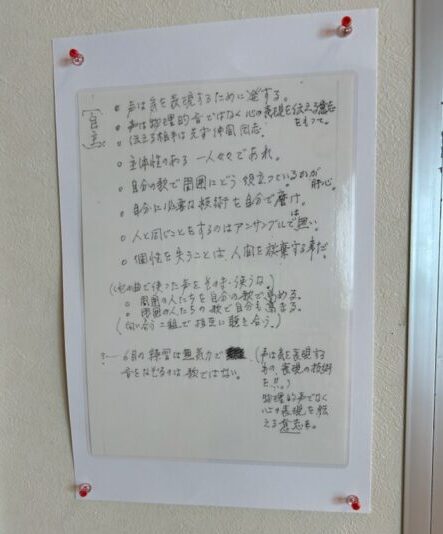 [自立]
○ 声は気を表現するために発する。
○ 声は物理的音ではなく心の表現を伝える意志をもって。
○ 伝える相手は先ず仲間同志。
○ 主体性のある一人々々であれ。
○ 自分の歌で周囲にどう伝えているのかが肝心。
○ 自分に必要な技術を自分で磨け。
○ 人と同じことをするのはアンサンブルでは無い。
○ 個性を失うことは、人間を放棄する事だ。
(他の曲で使った声をそのまゝ使うな。)
○ 周囲の人たちを自分の歌で高める。
○ 周囲の人たちの歌で自分も高まる。
(向い合う二組で相互に聴き合う。)
6月の練習は無気力で
音をなぞるのは歌ではない。
(声は気を表現する
もの、表現の技術
を!!。)
物理的声でなく
心の表現を伝
える意志を。